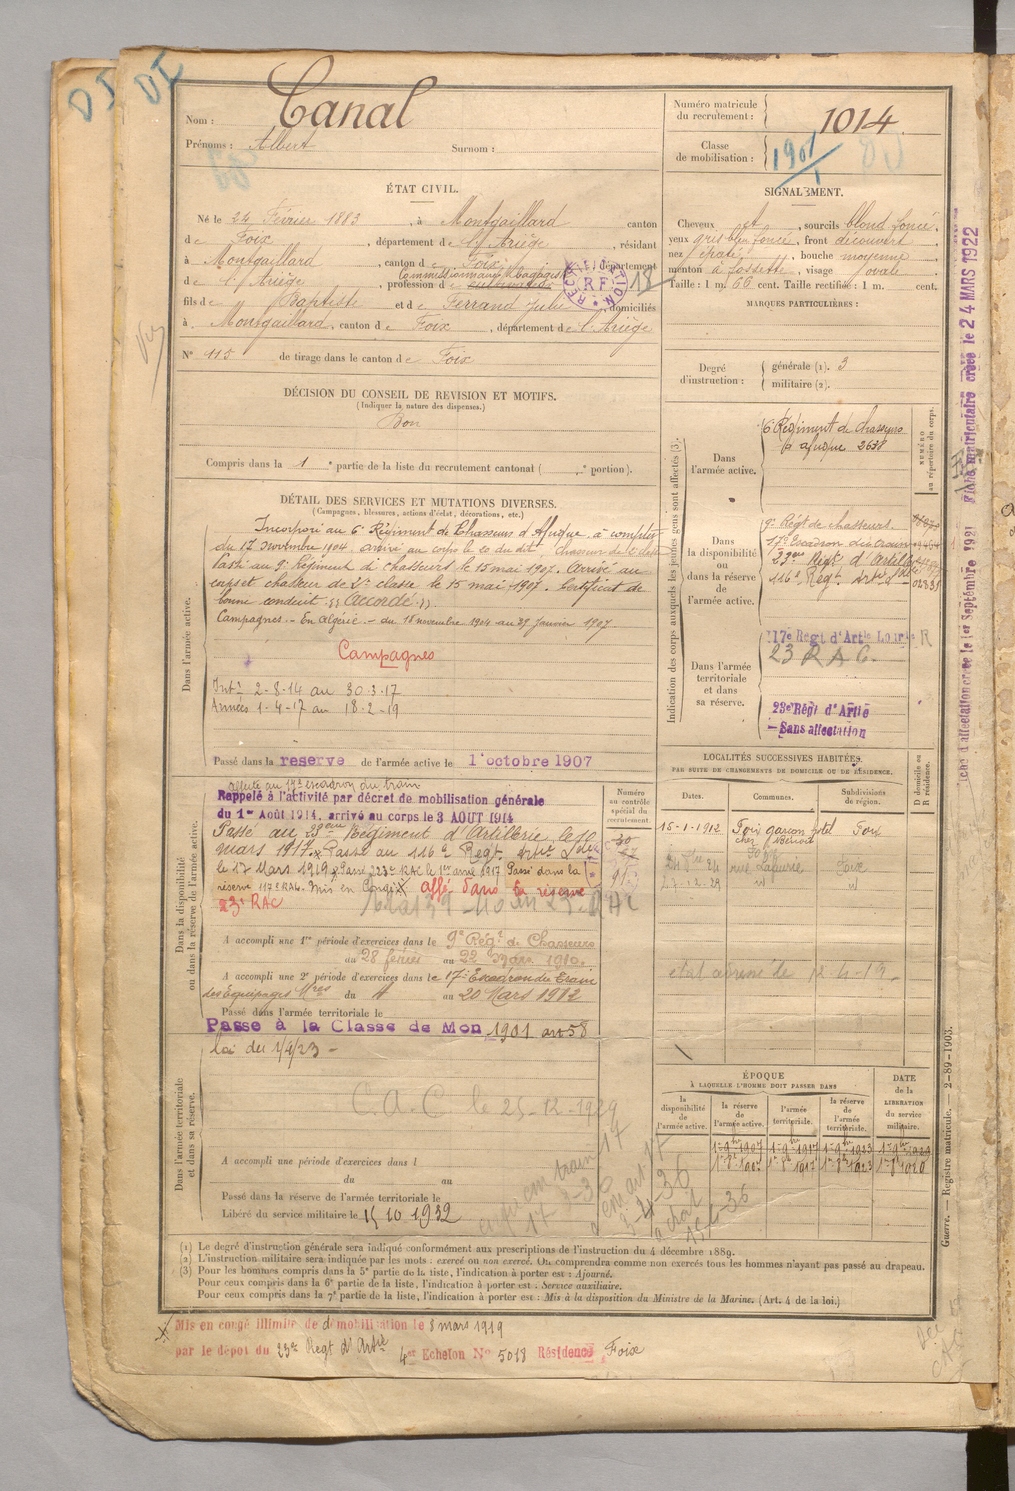 DI
DI
Nom : Canal
Prénoms : Albert Surnom :
Numéro matricule du recrutement : 1014
Classe de mobilisation : 1901
ÉTAT CIVIL.
Né le 24 Février 1883, à Montgaillard canton
de Foix, département de l'Ariège, résidant
à Montgaillard, canton de Foix, département
de l'Ariège, profession de cultivateur
fils de Baptiste et de Ferrand Julie, domiciliés
à Montgaillard, canton de Foix, département de l'Ariège
N° 115 de tirage dans le canton de Foix
SIGNALEMENT.
Cheveux et, sourcils blond foncé,
yeux gris bleu foncé, front découvert
nez épaté, bouche moyenne
menton à fossette, visage ovale
Taille : 1 m. 66 cent. Taille rectifiée : 1 m. cent.
MARQUES PARTICULIÈRES :
Degré d'instruction : générale (1). 3
militaire (2).
DÉCISION DU CONSEIL DE REVISION ET MOTIFS.
(Indiquer la nature des dispenses.)
Bon
Compris dans la 1 partie de la liste du recrutement cantonal ( portion).
DÉTAIL DES SERVICES ET MUTATIONS DIVERSES.
(Campagnes, blessures, actions d'éclat, décorations, etc.)
Dans l'armée active.
Incorporé au 6e Régiment de Chasseurs d'Afrique à compter
du 17 novembre 1904, arrivé au corps le 20 du dit, Chasseur de 2e classe
Passé au 9e Régiment de chasseurs le 15 mai 1907. Arrivé au
corps et chasseur de 2e classe le 15 mai 1907. Certificat de
bonne conduite "Accordé".
Campagnes. - En Algérie. - du 18 novembre 1904 au 29 janvier 1907
Campagnes
Intr 2-8-14 au 30-3-17
Armées 1-4-17 au 18-2-19
Passé dans la reserve de l'armée active le 1 octobre 1907
Indication des corps auxquels les jeunes gens sont affectés (3).
NUMÉRO au répertoire du corps.
Dans l'armée active.
6e Régiment de chasseurs
d'afrique 2638
Dans la disponibilité ou dans la réserve de l'armée active.
9e Régt de chasseurs
17e Escadron du train
23eme Regt d'Artillerie
116e Regt Artie Lde 02831
Dans l'armée territoriale et dans sa réserve.
117e Regt d'Artie Lourde R
23 RAC.
23e Régt d'Artie
- Sans affectation
Dans la disponibilité ou dans la réserve de l'armée active.
affecté au 17e escadron du train
Rappelé à l'activité par décret de mobilisation générale
du 1er Août 1914, arrivé au corps le 3 AOUT 1914
Passé au 23eme Régiment d'Artillerie le 10
mars 1917. x Passé au 116e Regt Artie Lde
le 17 Mars 1917. Passé 223e RAC le 1er avril 1917 Passé dans la
réserve 117e RAL. Mis en Congé X affé dans la réserve
23e RAC
A accompli une 1re période d'exercices dans le 9e Régt de Chasseurs
du 28 février au 22 Mars 1910.
A accompli une 2e période d'exercices dans le 17e Escadron du Train
des Equipages Mres du 4 au 20 Mars 1912
Passé dans l'armée territoriale le
Passé à la Classe de Mon 1901 art 58
loi du 1/4/23 -
Numéro au contrôle spécial du recrutement.
LOCALITÉS SUCCESSIVES HABITÉES,
PAR SUITE DE CHANGEMENTS DE DOMICILE OU DE RÉSIDENCE.
Dates. Communes. Subdivisions de région. D domicile ou R résidence.
15-1-1912 Foix garçon hôtel Foix
chez Benoit
Foix
rue Lafaurie Foix
Dans l'armée territoriale et dans sa réserve.
C.A.C le 25-12-1929
A accompli une période d'exercices dans l
du au
Passé dans la réserve de l'armée territoriale le
Libéré du service militaire le 15 10 1932
ÉPOQUE
À LAQUELLE L'HOMME DOIT PASSER DANS
la disponibilité de l'armée active. la réserve de l'armée active. l'armée territoriale. la réserve de l'armée territoriale.
DATE de la LIBÉRATION du service militaire.
(1) Le degré d'instruction générale sera indiqué conformément aux prescriptions de l'instruction du 4 décembre 1889.
(2) L'instruction militaire sera indiquée par les mots : exercé ou non exercé. On comprendra comme non exercés tous les hommes n'ayant pas passé au drapeau.
(3) Pour les hommes compris dans la 5e partie de la liste, l'indication à porter est : Ajourné.
Pour ceux compris dans la 6e partie de la liste, l'indication à porter est : Service auxiliaire.
Pour ceux compris dans la 7e partie de la liste, l'indication à porter est : Mis à la disposition du Ministre de la Marine. (Art. 4 de la loi.)
Mis en congé illimité de démobilisation le 8 mars 1919
par le dépot du 23e Regt d'Artie 4er Echelon N° 5018 Résidence Foix
Guerre. — Registre matricule. — 2-89-1903.
Fiche matriculaire créée le 24 MARS 1922